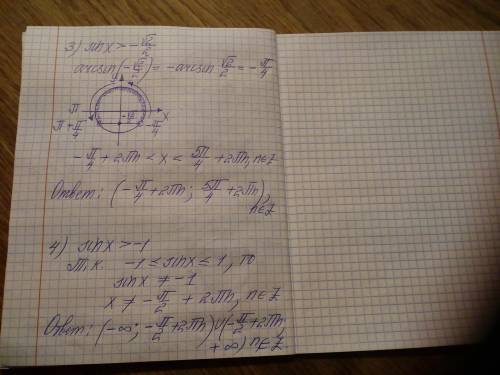 3) sinx > -√2/2
arcsin(-√2/2) = -arcsin √2/2 = -π/4
y
π
-√2/2
x
π + π/4
-π/4
-π/4 + 2πn < x < 5π/4 + 2πn, n∈Z
Ответ: (-π/4 + 2πn; 5π/4 + 2πn),
n∈Z
4) sinx > -1
Т.к. -1 ≤ sinx ≤ 1, то
sinx ≠ -1
x ≠ -π/2 + 2πn, n∈Z
Ответ: (-∞; -π/2 + 2πn)∪(-π/2 + 2πn;
+∞) n∈Z.